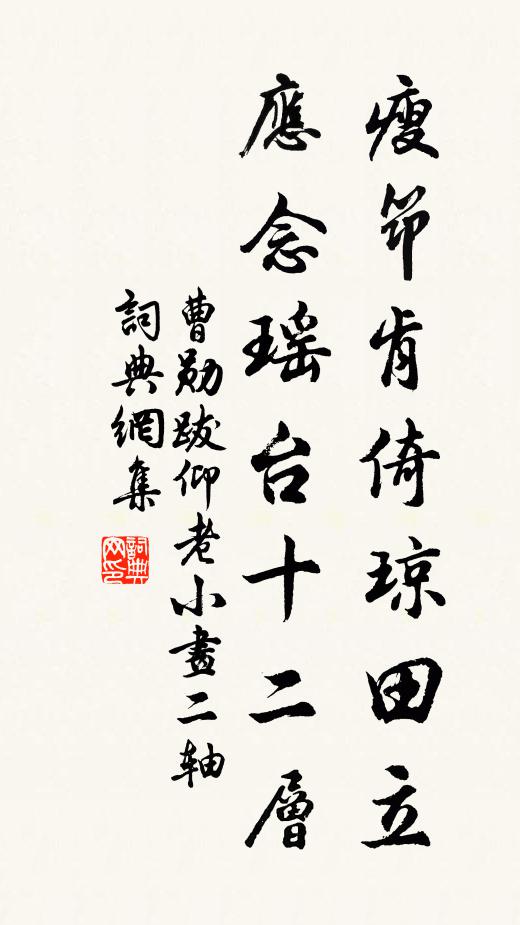 瘦筇肯倚琼田立
應念瑶台十二層
曹勋跋仰老小畫二軸
詞典網集
詞典
网印